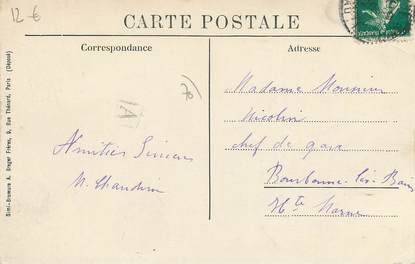 12 €
CARTE POSTALE
Correspondance
Adresse
70
A
Madame Monsieur
Nicolin
chef de gare
Bourbonne-les-Bains
Hte Marne
Amitiés Sincères
Simi-Bromure A. Breger Frères, 9, Rue Thénard, Paris (Déposé)